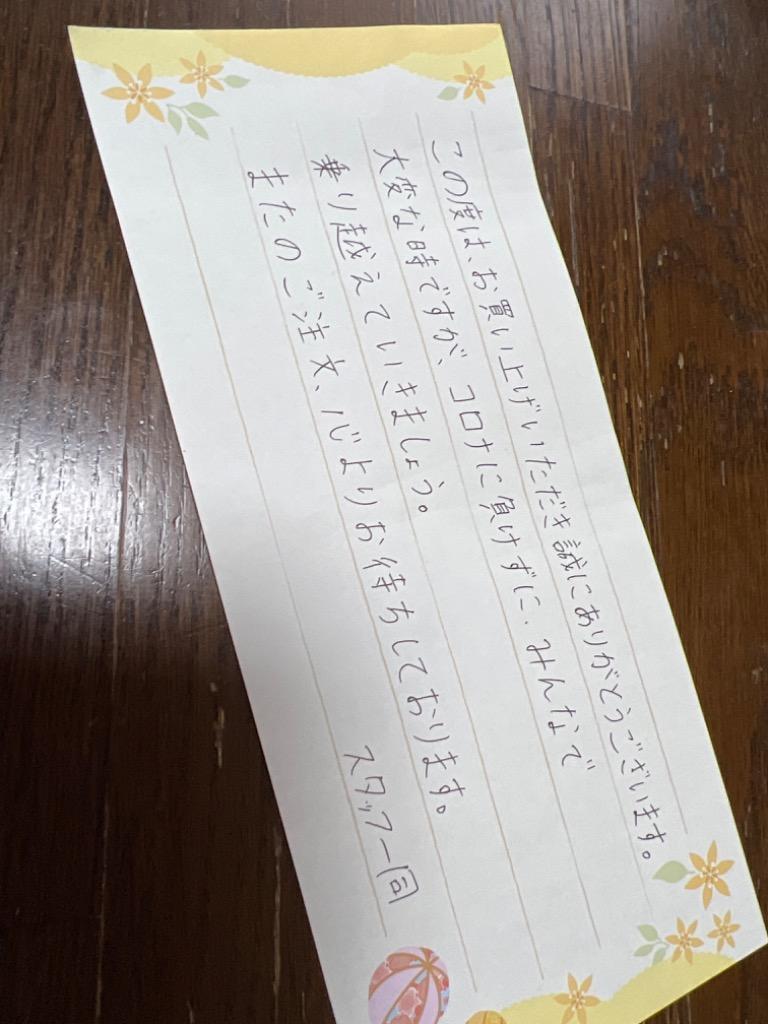 この度は、お買い上げいただき誠にありがとうございます。
大変な時ですが、コロナに負けずに、みんなで
乗り越えていきましょう。
またのご注文、心よりお待ちしております。
スタッフ一同